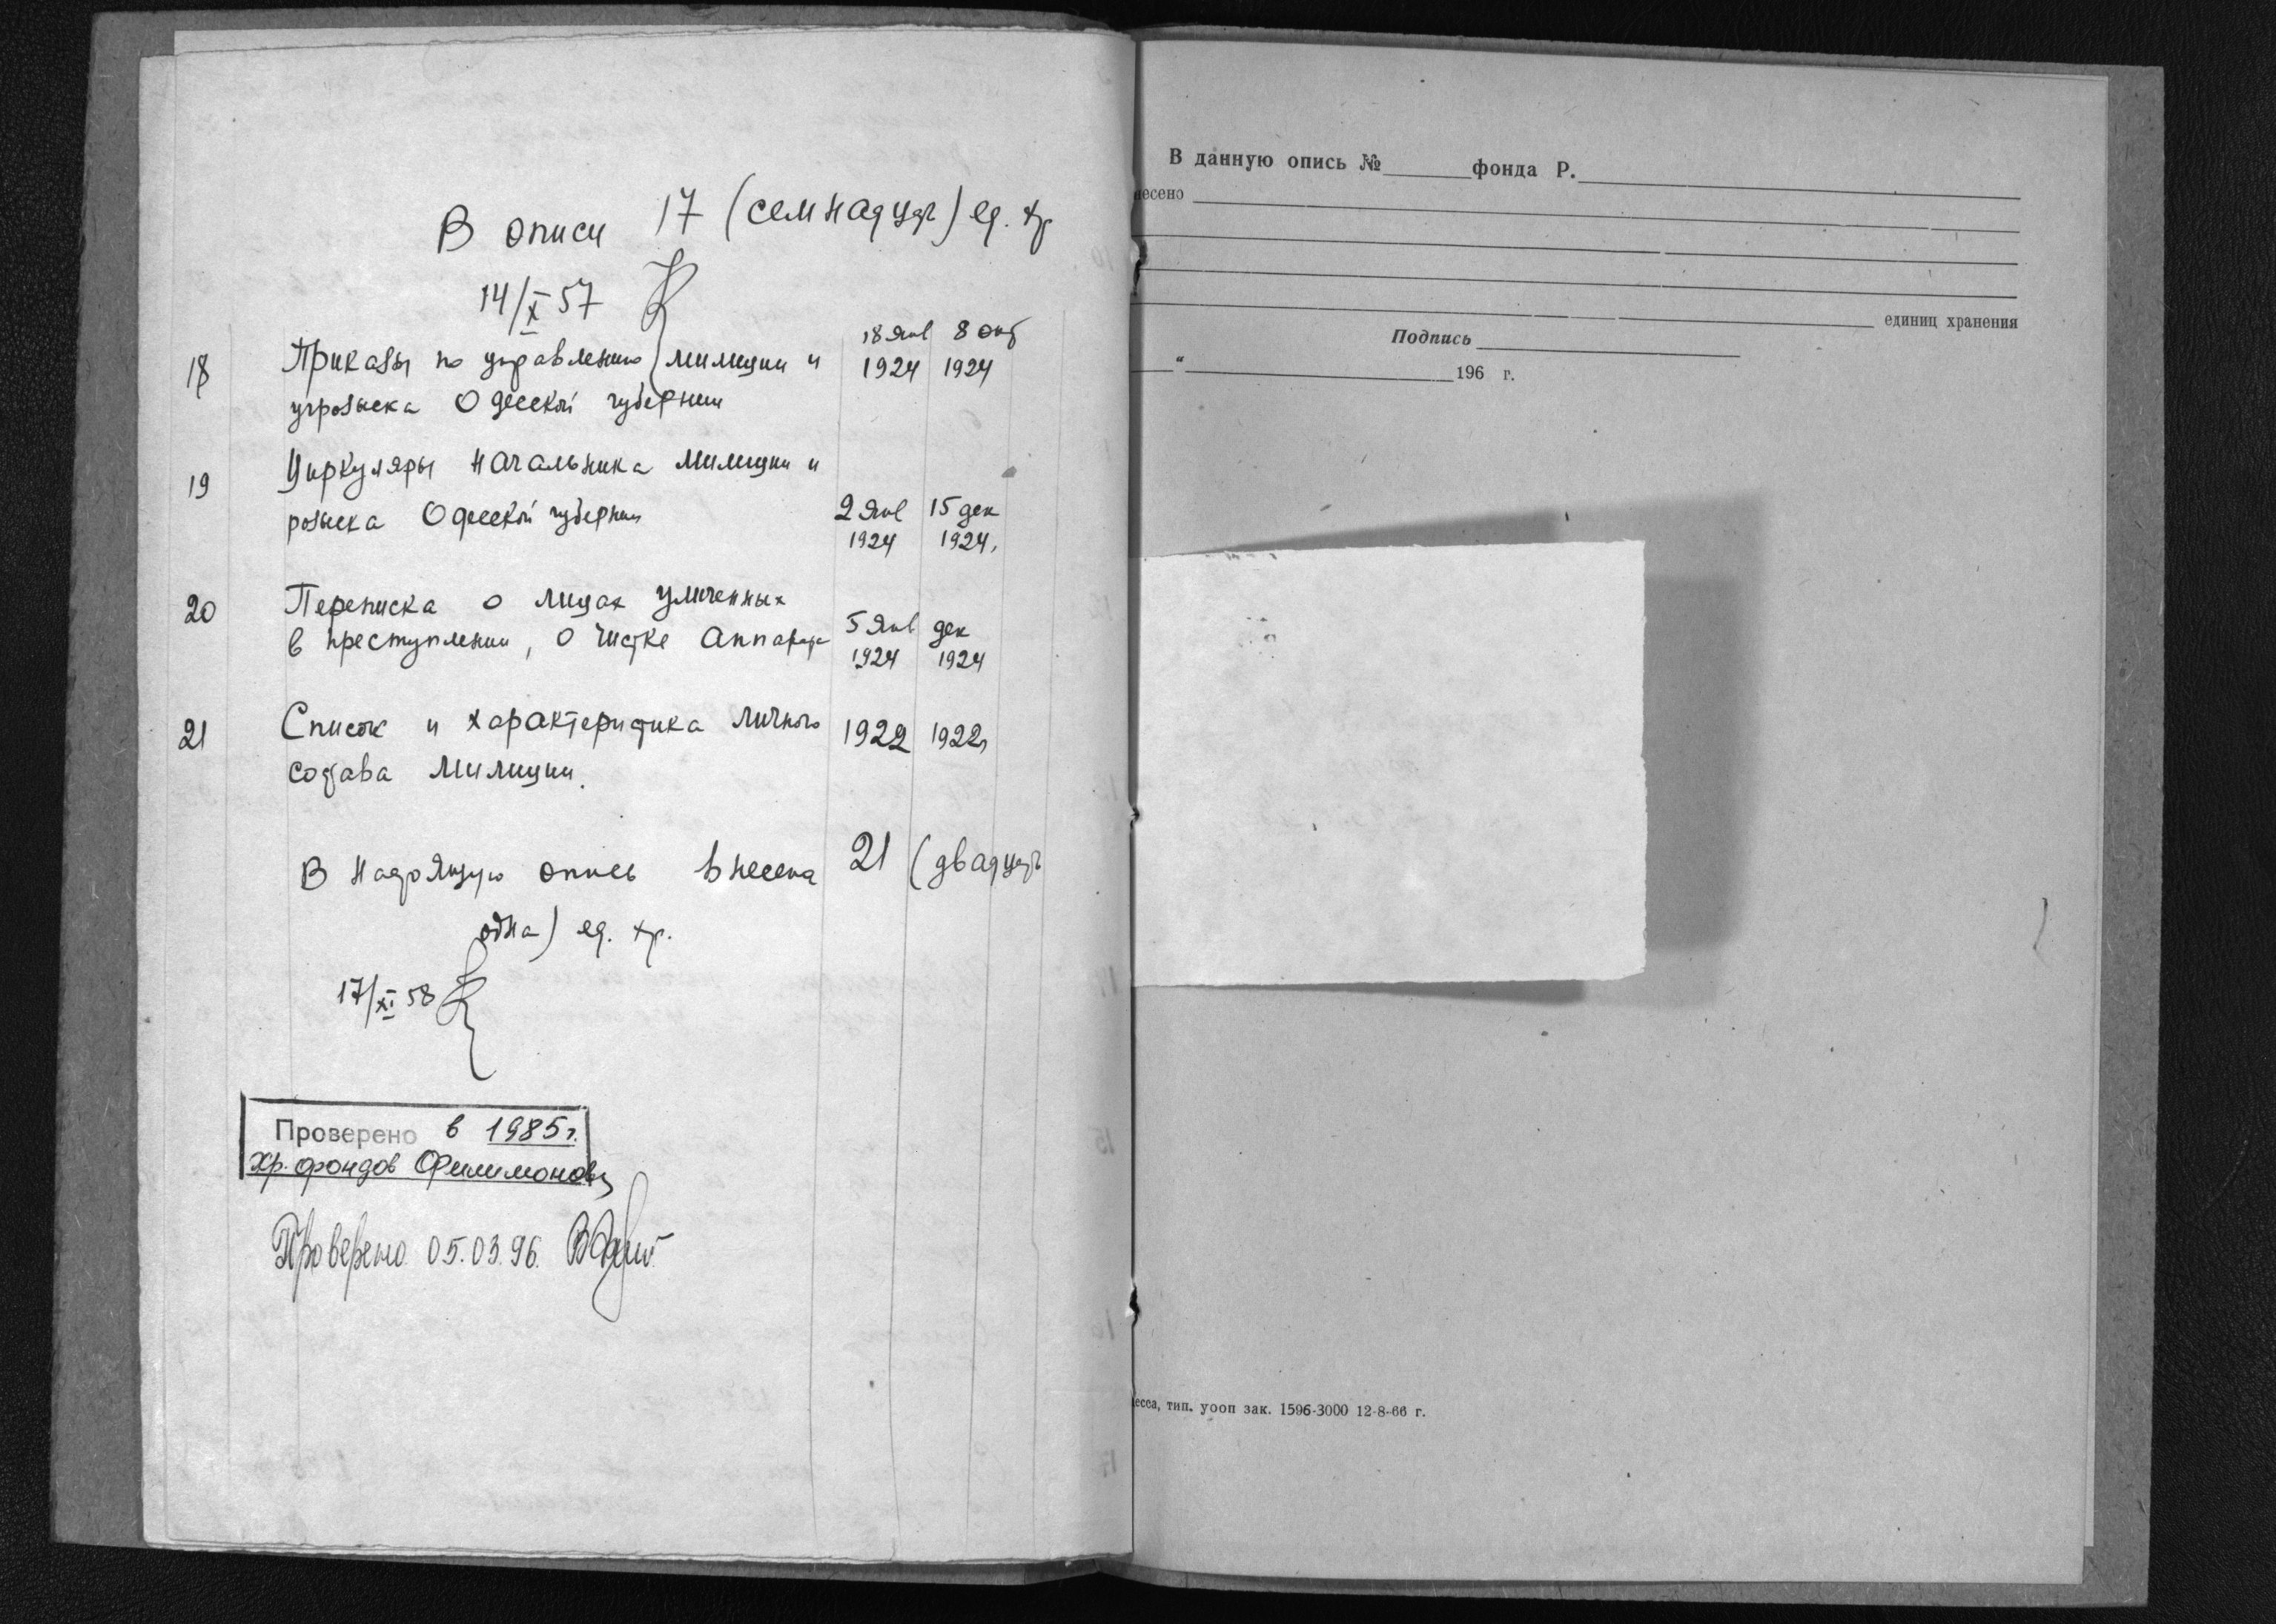 В описи 17 (семнадцать) ед. хр
14/X 57
18 Приказы по управлению милиции и 18 янв 1924 8 окт 1924
угрозыска Одесской губернии
19 Циркуляры начальника милиции и
розыска Одесской губернии 2 янв 1924 15 дек 1924,
20 Переписка о лицах уличенных
в преступлении, о чистке аппарата 5 янв 1924 дек 1924
21 Список и характеристика личного 1922 1922,
состава милиции.
В настоящую опись внесена 21 (двадцать
одна) ед. хр.
17/XI 58
Проверено в 1985 г.
хр. фондов Филимонова
Проверено 05.03.96.
В данную опись № фонда Р.
несено
единиц хранения
Подпись
" 196 г.
есса, тип. уооп зак. 1596-3000 12-8-66 г.